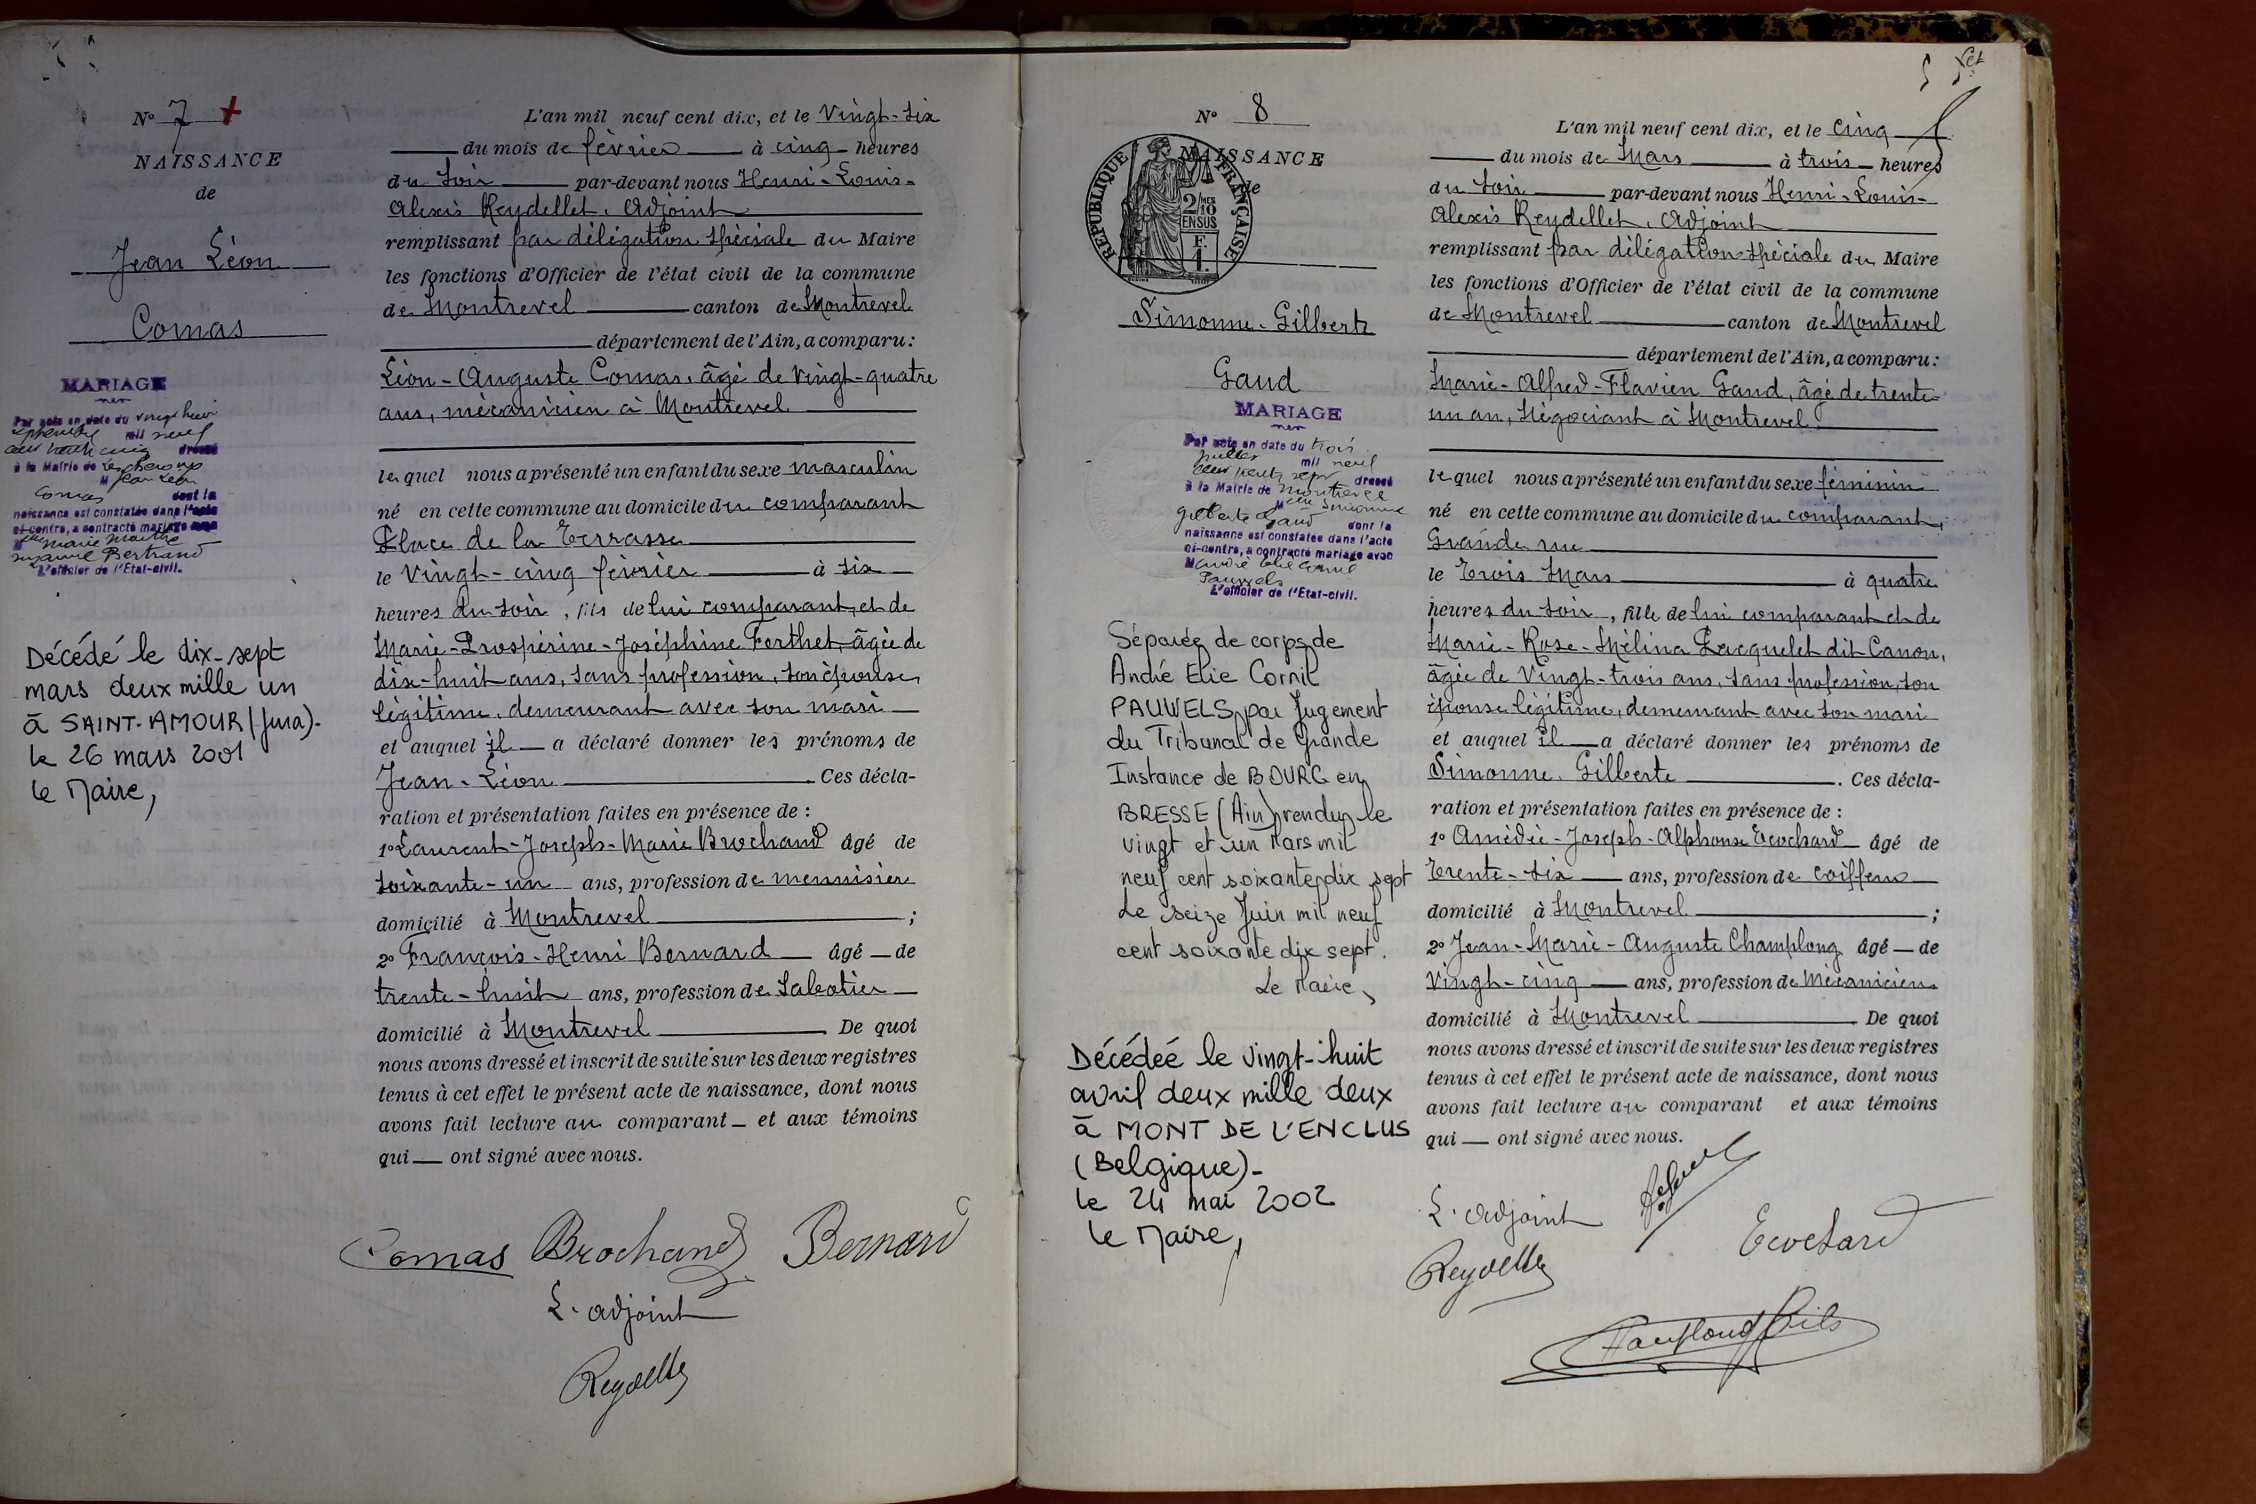 N° 7 +
NAISSANCE
de
Jean Léon
Comas
MARIAGE
Par acte en date du vingt huit
septembre mil neuf
cent trente cinq dressé
à la Mairie de
M Jean Léon
Comas dont la
naissance est constatée dans l'acte
ci-contre, a contracté mariage avec
Marie Marthe
Bertrand
L'officier de l'Etat-civil.
Décédé le dix-sept
mars deux mille un
à SAINT-AMOUR (Jura)-
le 26 mars 2001
le Maire,
L'an mil neuf cent dix, et le Vingt-six
du mois de février à cinq heures
du soir par-devant nous Henri-Louis-
Alexis Reydellet, Adjoint
remplissant par délégation spéciale du Maire
les fonctions d'Officier de l'état civil de la commune
de Montrevel canton de Montrevel
département de l'Ain, a comparu:
Léon-Auguste Comas, âgé de vingt-quatre
ans, mécanicien à Montrevel
lequel nous a présenté un enfant du sexe masculin
né en cette commune au domicile du comparant
Place de la Terrasse
le Vingt-cinq février à six
heures du soir, fils de lui comparant, et de
Marie-Prospérine-Joséphine Ferthet, âgée de
dix-huit ans, sans profession, son épouse
légitime, demeurant avec son mari
et auquel il a déclaré donner les prénoms de
Jean-Léon Ces décla-
ration et présentation faites en présence de :
1° Laurent-Joseph-Marie Brochand âgé de
soixante-un ans, profession de menuisier
domicilié à Montrevel ;
2° François-Henri Bernard âgé de
trente-huit ans, profession de Sabotier
domicilié à Montrevel De quoi
nous avons dressé et inscrit de suite sur les deux registres
tenus à cet effet le présent acte de naissance, dont nous
avons fait lecture au comparant et aux témoins
qui ont signé avec nous.
Comas Brochand Bernard
L'adjoint
Reydellet
N° 8
NAISSANCE
de
RÉPUBLIQUE FRANÇAISE
2/10 MES
EN SUS
F.
1.
Simonne-Gilberte
Gaud
MARIAGE
Par acte en date du trois
juillet mil neuf
cent trente sept dressé
à la Mairie de Montrevel
Melle Simonne
Gilberte Gaud dont la
naissance est constatée dans l'acte
ci-contre, a contracté mariage avec
M André Elie Cornil
Pauwels
L'officier de l'Etat-civil.
Séparée de corps de
André Elie Cornil
PAUWELS par Jugement
du Tribunal de Grande
Instance de BOURG en
BRESSE (Ain) rendu le
vingt et un Mars mil
neuf cent soixante dix sept
Le seize Juin mil neuf
cent soixante dix sept.
Le Maire,
Décédeé le vingt-huit
avril deux mille deux
à MONT DE L'ENCLUS
(Belgique)-
le 24 mai 2002
le Maire,
L'an mil neuf cent dix, et le cinq
du mois de Mars à trois heures
du soir par-devant nous Henri-Louis-
Alexis Reydellet, Adjoint
remplissant par délégation spéciale du Maire
les fonctions d'Officier de l'état civil de la commune
de Montrevel canton de Montrevel
département de l'Ain, a comparu:
Marie-Alfred-Flavien Gaud, âgé de trente-
un an, Négociant à Montrevel
lequel nous a présenté un enfant du sexe féminin
né en cette commune au domicile du comparant,
Grande rue
le Trois Mars à quatre
heures du soir, fille de lui comparant et de
Marie-Rose-Mélina Jacquelet dit Canon,
âgée de Vingt-trois ans, sans profession, son
épouse légitime, demeurant avec son mari
et auquel il a déclaré donner les prénoms de
Simonne Gilberte. Ces décla-
ration et présentation faites en présence de :
1° Amédée-Joseph-Alphonse Ecochard âgé de
Trente-six ans, profession de coiffeur
domicilié à Montrevel ;
2° Jean-Marie-Auguste Champlong âgé de
Vingt-cinq ans, profession de Mécanicien
domicilié à Montrevel De quoi
nous avons dressé et inscrit de suite sur les deux registres
tenus à cet effet le présent acte de naissance, dont nous
avons fait lecture au comparant et aux témoins
qui ont signé avec nous.
L'adjoint
Reydellet
Ecochard